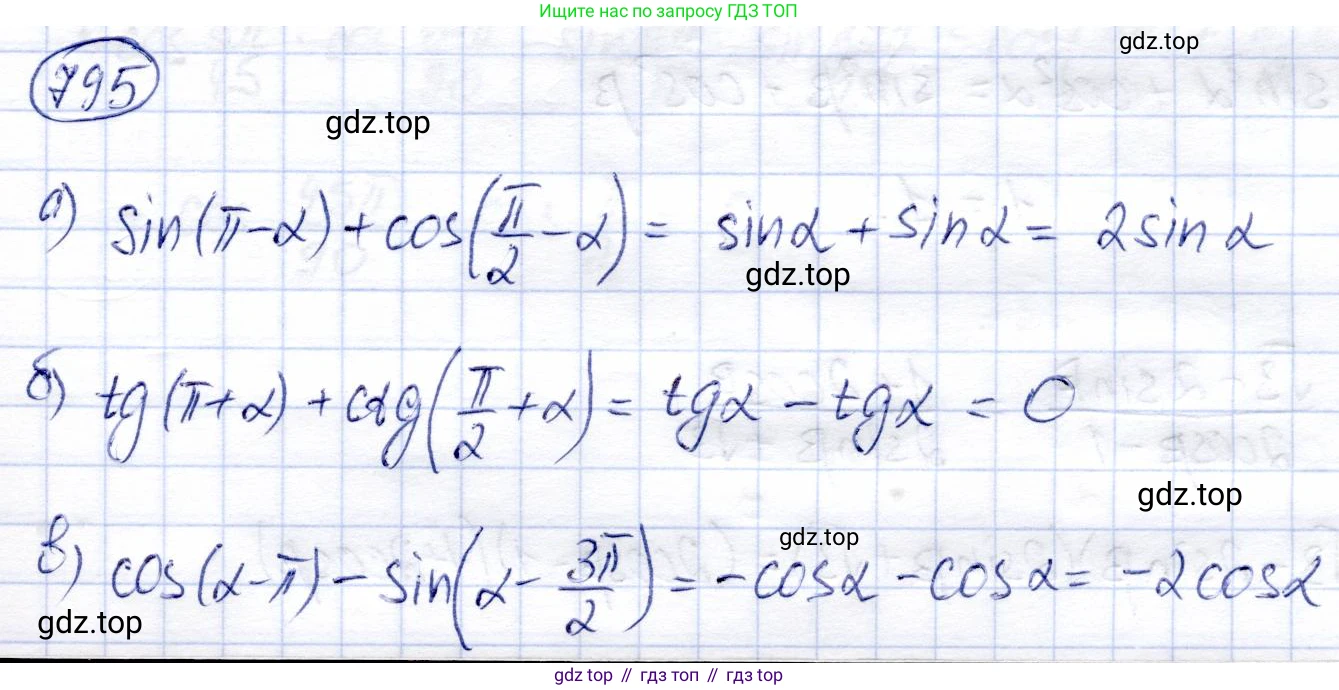 Ищите нас по запросу ГДЗ ТОП
gdz.top
795
gdz.top
а) sin(π-α)+cos(π/2-α)= sinα+sinα= 2sinα
gdz.top
б) tg(π+α)+ctg(π/2+α)= tgα-tgα = 0
gdz.top
gdz.top
в) cos(α-π)-sin(α-3π/2)= -cosα-cosα= -2cosα
gdz.top
gdz top // гдз топ // гдз top